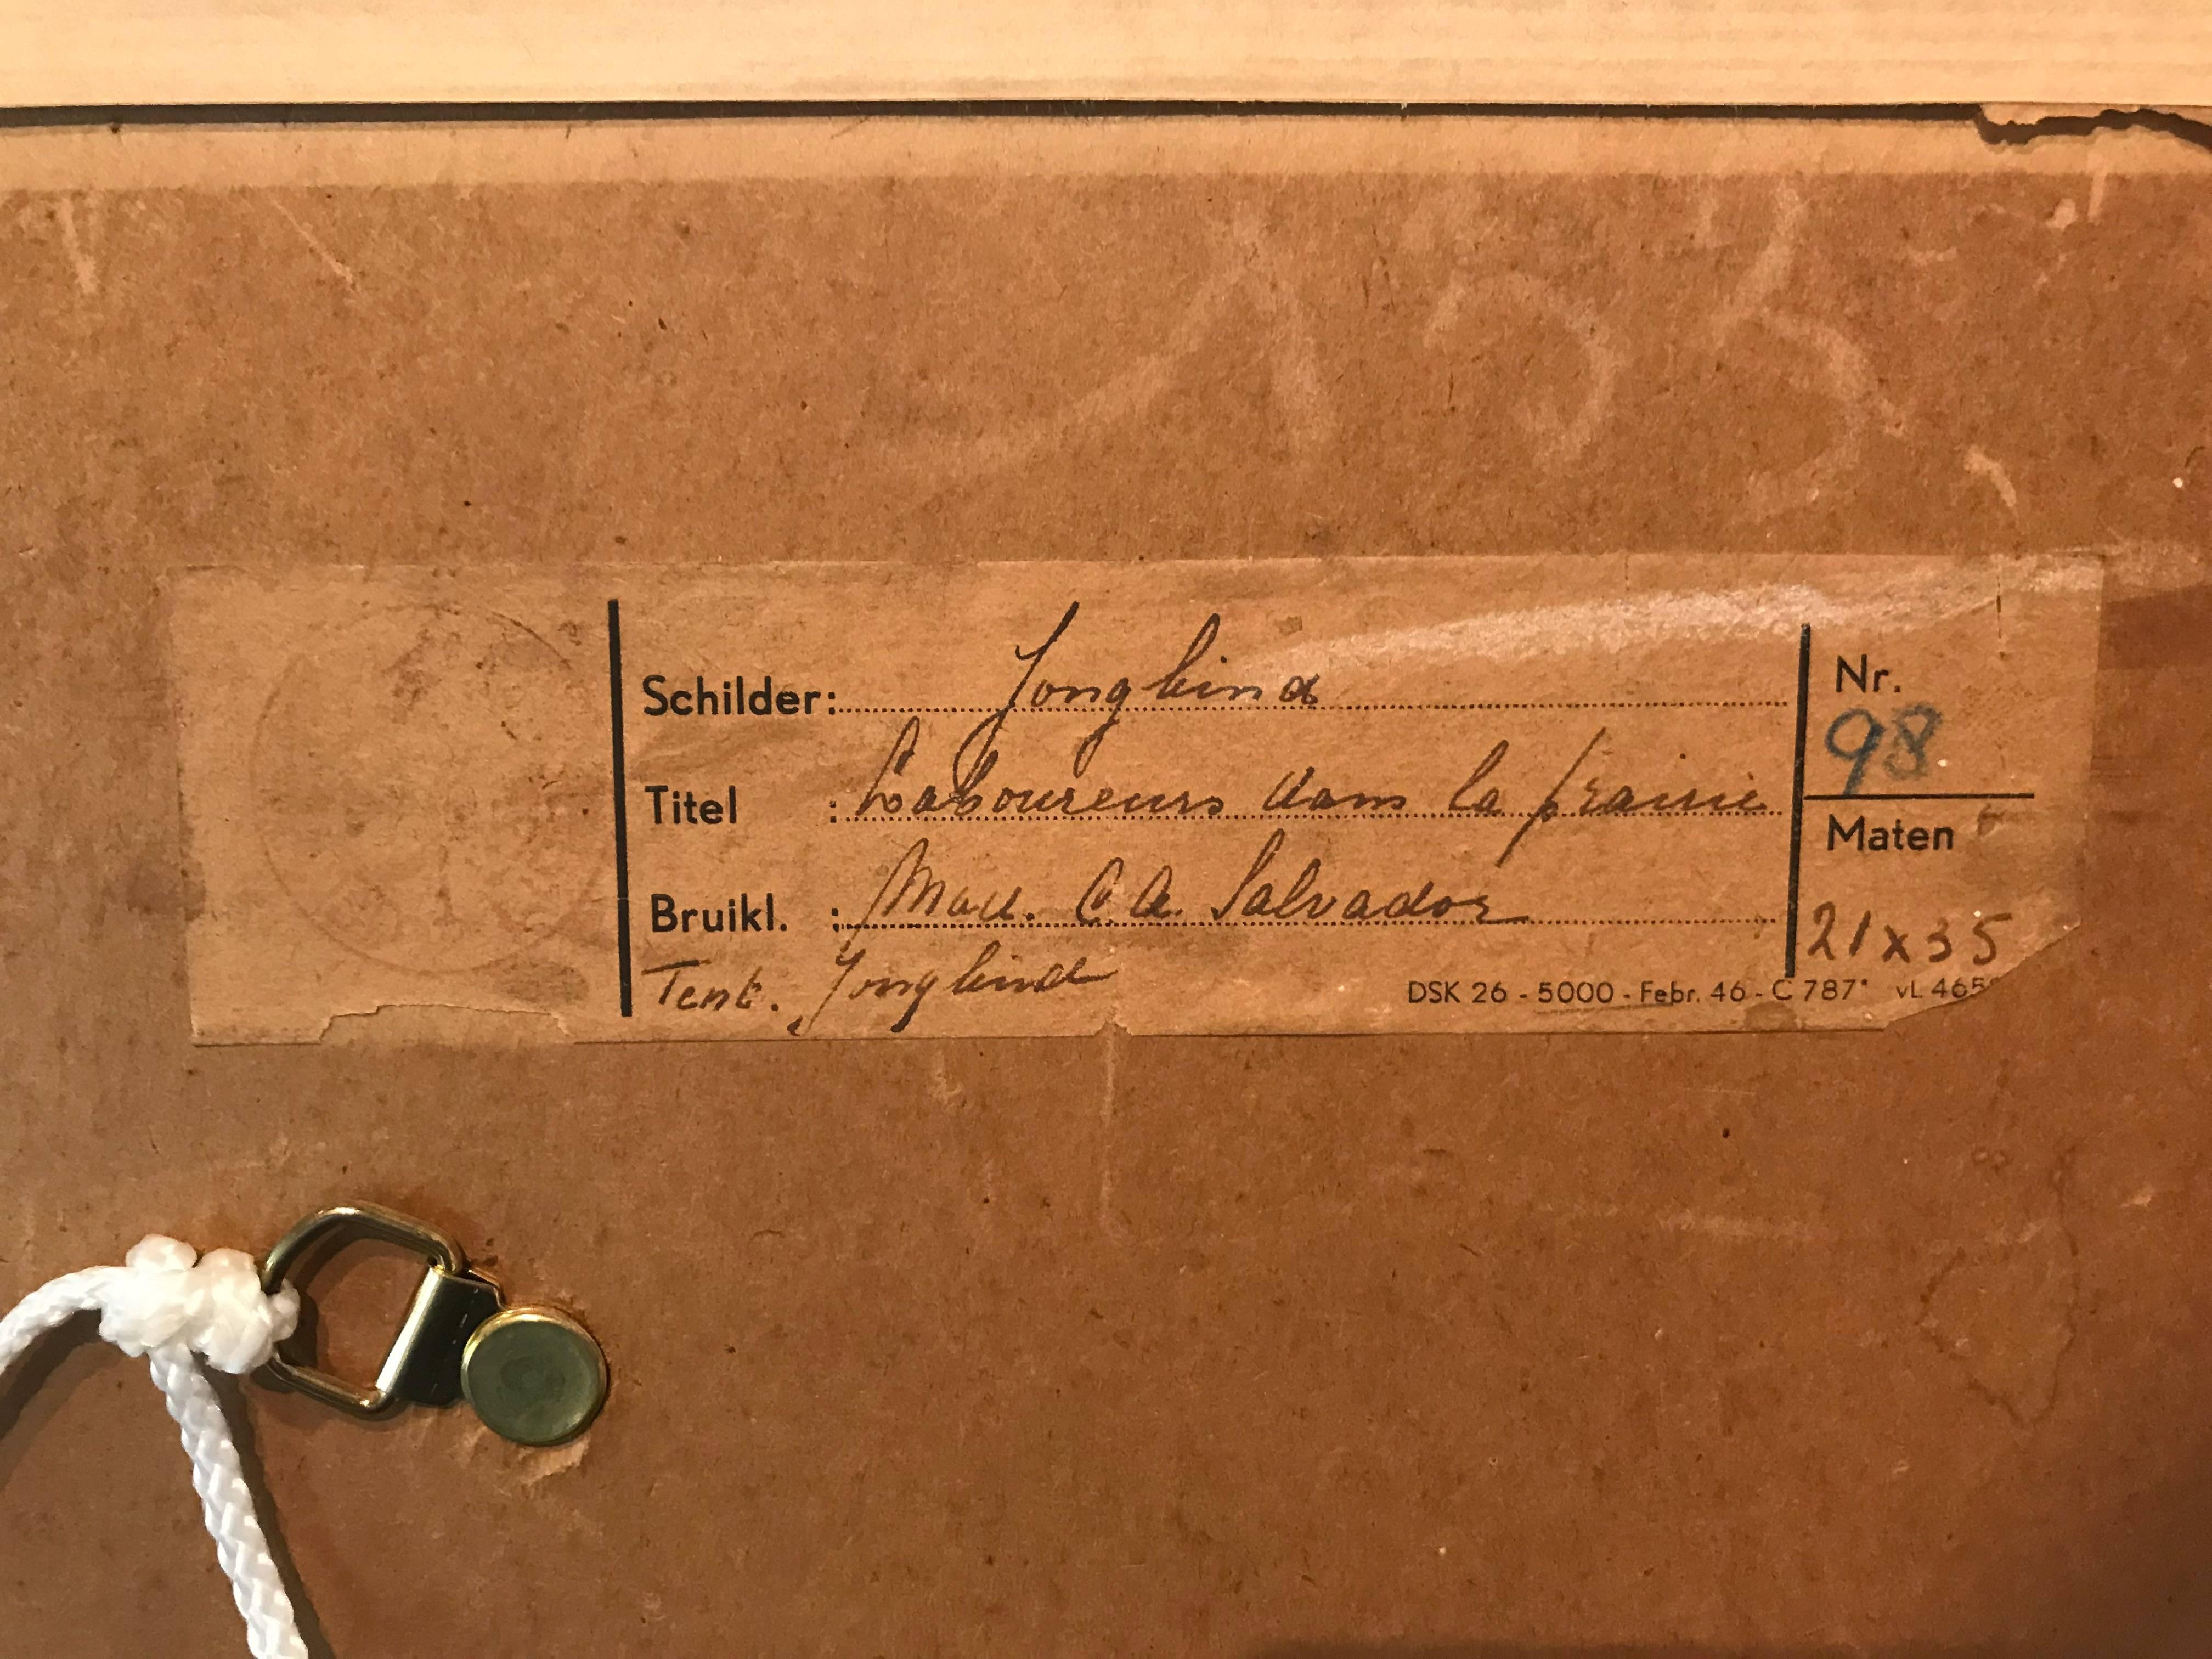 Schilder: Jongkind
Nr. 98
Titel : Laboureurs dans la prairie
Maten 21 x 35
Bruikl. : C. A. Salvador
Tent. Jongkind
DSK 26 - 5000 - Febr. 46 - C 787* vL 465